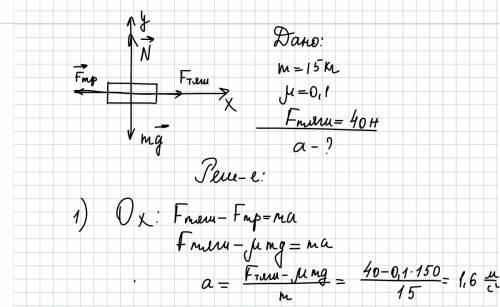 y
N
Fтр
Fтяги
x
mg
Дано:
m=15кг
μ=0,1
Fтяги=40н
a-?
Реш-е:
1) Ox: Fтяги-Fтр=ma
Fтяги-μmg=ma
a = (Fтяги-μmg)/m = (40-0,1·150)/15 = 1,6 м/с